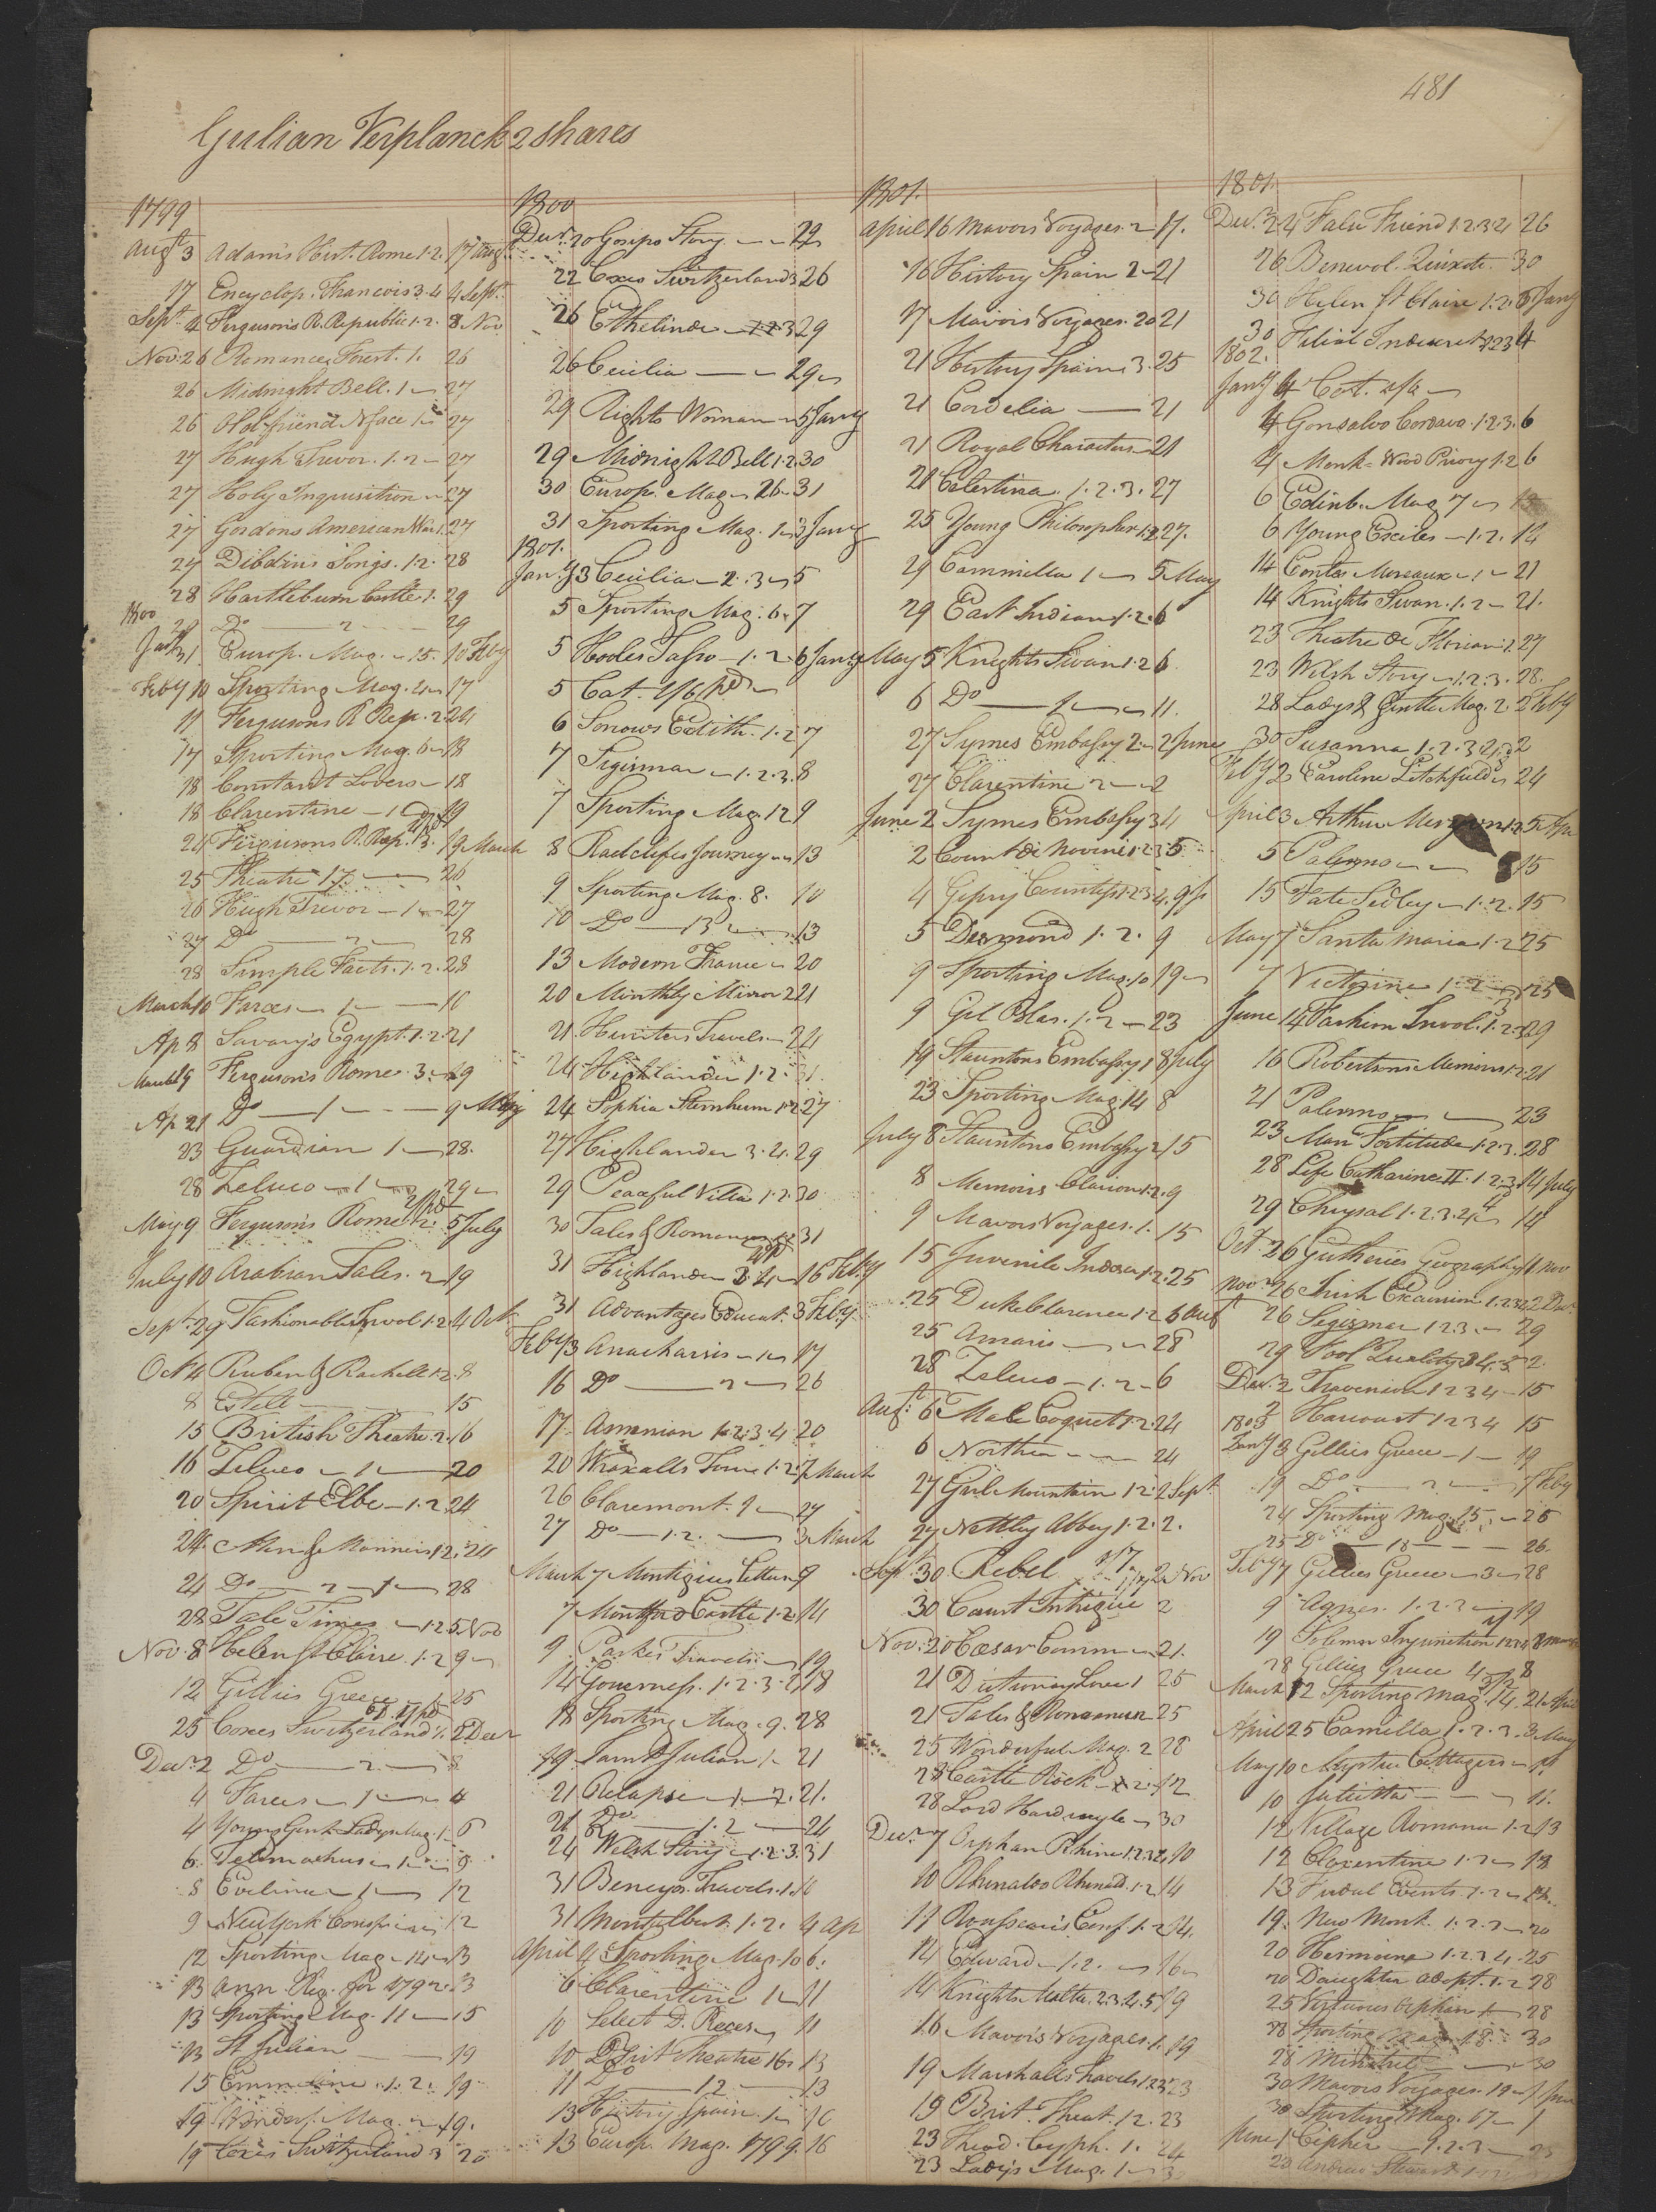 481
Gulian Verplanck 2 Shares
1799
Augt 3 Adam's Hist. Rome 1.2. 17 Aug
17 Encyclop. Francois 3.4 4 Sept.
Sept. 4 Ferguson's R. Republic 1.2. 8 Nov
Nov. 26 Romance Forest. 1. 26
26 Midnight Bell. 1 27
26 Old friend N face 1 27
27 Hugh Trevor. 1.2 27
27 Holy Inquisition 27
27 Gordons American War 1. 27
27 Dibdins Songs. 1.2. 28
28 Hartleburn Castle 1. 29
1800
29 Do 2 29
Jany 31 Europ. Mag. 15. 10 Feby
Feby 10 Sporting Mag. 2 17
11 Fergusons R Rep. 2 24
17 Sporting Mag. 6 18
18 Constant Lovers 18
18 Clarentine 1 19
24 Fergusons R. Rep. 3. 19 March
25 Theatre 17. 26
26 Hugh Trevor 1 27
27 Do 2 28
28 Simple Facts. 1.2. 28
March 10 Farces 1 16
Ap 8 Savary's Egypt. 1.2. 21
March 19 Ferguson's Rome. 3. 29
Ap 21 Do 1 9 May
23 Guardian 1 28.
28 Zeluco 1 29
May 9 Ferguson's Rome 2. 5 July
July 10 Arabian Tales. 2 19
Sept. 29 Fashionable Invol. 1.2 4 Oct
Oct 4 Reuben & Rachell 1.2. 8
8 Estell 15
15 British Theatre. 2. 16
16 Zeluco 1 20
20 Spirit Elbe 1.2 24
24. Men & Manners 1.2. 24
24 Do 28
28 Tale Times 1.2 5 Nov
Nov. 8 Helen St Claire. 1.2 9
12 Gillies Greece 1 25
25 Coxes Switzerland 1. 2 Decr
Decr. 2 Do 2. 8
4 Farces 1 4
4 Young Gent. Ladys Mag. 1 6
6. Telemachus 1 8
8 Evelina 1 12
9 New York Conspiracy 12
12 Sporting Mag 14 13
13 Ann. Reg. for 1792. 13
13 Sporting Mag. 11 15
13 St Julian 19
15 Emmeline. 1.2. 19
19 Wonderf. Mag. 2 19.
19 Coxes Switzerland 3 20
1800
Decr. 20 Gossips Story 22
22 Coxes Switzerland 3 26
26 Ethelinde 1.2.3 29
26 Cecilia 29
29 Rights Woman 5 Jany
29 Midnight Bell 1.2. 30
30 Europ. Mag 26 31
31 Sporting Mag. 1 3 Jany
1801.
Jany 3 Cecilia 2.3 5
5 Sporting Mag. 6 7
5 Hooles Tasso 1.2. 6 Jany
5 Cat. 1/6 pd
6 Sorrows Edith. 1.2 7
7 Sigismar 1.2.3. 8
7 Sporting Mag. 12 9
8 Radclifes Journey 13
9 Sporting Mag. 8. 10
10 Do 13 13
13 Modern France 20
20 Monthly Mirror 2 21
21 Hunters Travels 24
24 Highlander 1.2. 31.
24 Sophia Sternheim 1.2 27
27 Highlander 3.4. 29
29 Peaceful Villa 1.2. 30
30 Tales & Romances 31
31 Highlander 3.4 16 Feby
31 Advantages Educat. 3 Feby
Feby 3 Anacharsis 1 17
16 Do 2 26
17. Armenian 1.2.3.4. 20
20 Wraxalls Tour 1.2. 7 March
26 Claremont. 1 27
27 Do 1.2. 3 March
March 7 Montigues Letters 9
7 Montford Castle 1.2. 14
9. Parkes Travels 19
14 Governess. 1.2.3. 18
18 Sporting Mag. 9. 28
19. Saint Julian 1. 21
21 Relapse 1.2. 21.
21 Do 1.2 24
24 Welsh Story 1.2.3. 31
31 Beneyos. Travels. 1. 6
31 Montalbert 1.2. 4 Ap
April 4 Sporting Mag. 10 6.
6 Clarentine 1 11
10 Select D. Reces 11
10 Brit Theatre 16 13
11 Do 12 13
13 History Spain. 1 16
13 Europ. Mag. 1799. 16
1801.
April 16 Mavors Voyages. 2 17.
16 History Spain 2 21
17 Mavors Voyages. 20 21
21 History Spain 3. 25
21 Cordelia 21
21 Royal Characters 21
21 Celestina. 1.2.3. 27
25 Young Philosopher 1.2 27.
29 Cammilla 1 5 May
29 East Indian 1.2. 6
May 5 Knights Swan 1.2 6
6 Do 11.
27 Symes Embassy 2. 2 June
27 Clarentine 2 2
June 2 Symes Embassy 3 4
2 Count di Novini 1.2.3 5
4 Gipsy Countess 1.2.3.4. 9
5 Desmond 1.2. 9
9 Sporting Mag. 10 19
9 Gil Blas. 1.2 23
19 Stauntons Embassy 1 8 July
23 Sporting Mag. 14 8
July 8 Stauntons Embassy 2 15
8 Memoirs Clarion 1.2. 9
9 Mavors Voyages. 1. 15
15 Juvenile Indiscr. 1.2. 25
25 Duke Clarence 1.2 6 Augt
25 Amaris 28
28 Zeluco 1.2 6
Augt. 6 Male Coquet 1.2 24
6 Northern 24
27 Girl Mountain 1.2. 2 Sept.
27 Nettley Abbey 1.2. 2.
Sept. 30 Rebel 2 Nov
30 Court Intrigue 2
Nov. 20 Cæsar Comm 21.
21 Dictionary Love 1 25
21 Tales & Romances 25
25 Wonderful Mag. 2 28
28 Castle Rock 1.2. 12
28 Lord Hardivyle 30
Decr 7 Orphan Rhine 1.2.3.4. 10
10 Rhinaldo Rhinald. 1.2. 14
11 Rousseau's Conf 1.2 14.
14 Edward 1.2. 16
14 Knights Malta. 2.3.4.5 19
16 Mavor's Voyages. 1. 19
19 Marshalls Travels 1.2.3 23
19 Brit. Theat. 12. 23
23 Theod. Cyph. 1. 24
23 Ladys Mag. 1
1801.
Decr. 24 False Friend 1.2.3.4 26
26 Benevol. Quixote. 30
30 Helen St Claire 1.2. 5 Jany
30 Filial Indiscret. 1.2.3 4
1802.
Jany 4 Cat. 2/6
4 Gonsalvo Cordova. 1.2.3. 6
4 Monk-Wood Priory 1.2 6
6 Edinb. Mag 7 13
6 Young Exciles 1.2. 14
14 Contes Moreaux 1 21
14 Knights Swan. 1.2 21.
23 Theatre de Florian 1 27
23 Welsh Story 1.2.3. 28.
28 Ladys & Gentle Mag. 2. 2 Feby
30 Susanna 1.2.3.4. 2
Feby 2 Caroline Litchfield 24
April 3 Arthur 1.2 5 Apr
5 Palermo 15
15 Fate Sedley 1.2. 15
May 7 Santa Maria 1.2 25
7 Victorine 1.2 25
June 14 Fashion Invol. 1.2. 29
16 Robertsons Memoirs 1.2 21
21 Palermo 23
23 Man Fortitude 1.2.3. 28
28 Life Catharine II. 1.2.3. 14 July
29 Chrysal 1.2.3.4 14
Oct. 26 Gutheries Geography 11 Nov
Nov 26 Irish Excursion 1.2.3.4 2 Decr.
26 Segismar 1.2.3. 29
29 Fool Quality 3.4.5 2.
Decr. 2 Travenion 1 2 3 4 15
2 Harcourt 1 2 3 4 15
1803
Jany 3 Gillies Greece 1 19
19 Do 2 7 Feby
24 Sporting Mag. 15. 25
25 Do 18 26.
Feby 7 Gillies Greece 3 28
9 Agnes. 1.2.3 19
19 Solemn Injunction 1.2.3.4
28 Gillies Greece 4 8
March 12 Sporting Mag. 14. 21 April
April 25 Camilla 1.2.3. 3 May
May 10 Mystic Cottagers 11
10 Julietta 11.
12 Village Romance 1.2 13
12 Clarentine 1.2 18
13 Feudal Events. 1.2
19. New Monk. 1.2.3 20
20 Hermione 1.2.3.4. 25
20 Daughter adopt. 1.2 28
25 Virtuous Orphan 28
28 Sporting Mag. 18. 30
28 Minstrel 30
30 Mavors Voyages. 19
30 Sporting Mag. 17 1
June 1 Cipher 1.2.3
20 Andrew Stewart